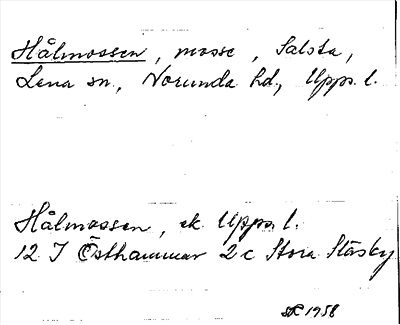 Hålmossen, mosse, Salsta,
Lena sn., Norunda hd., Upps. l.
Hålmossen, ek. Upps. l.
12 I Östhammar 2 c Stora Stäsby
1958